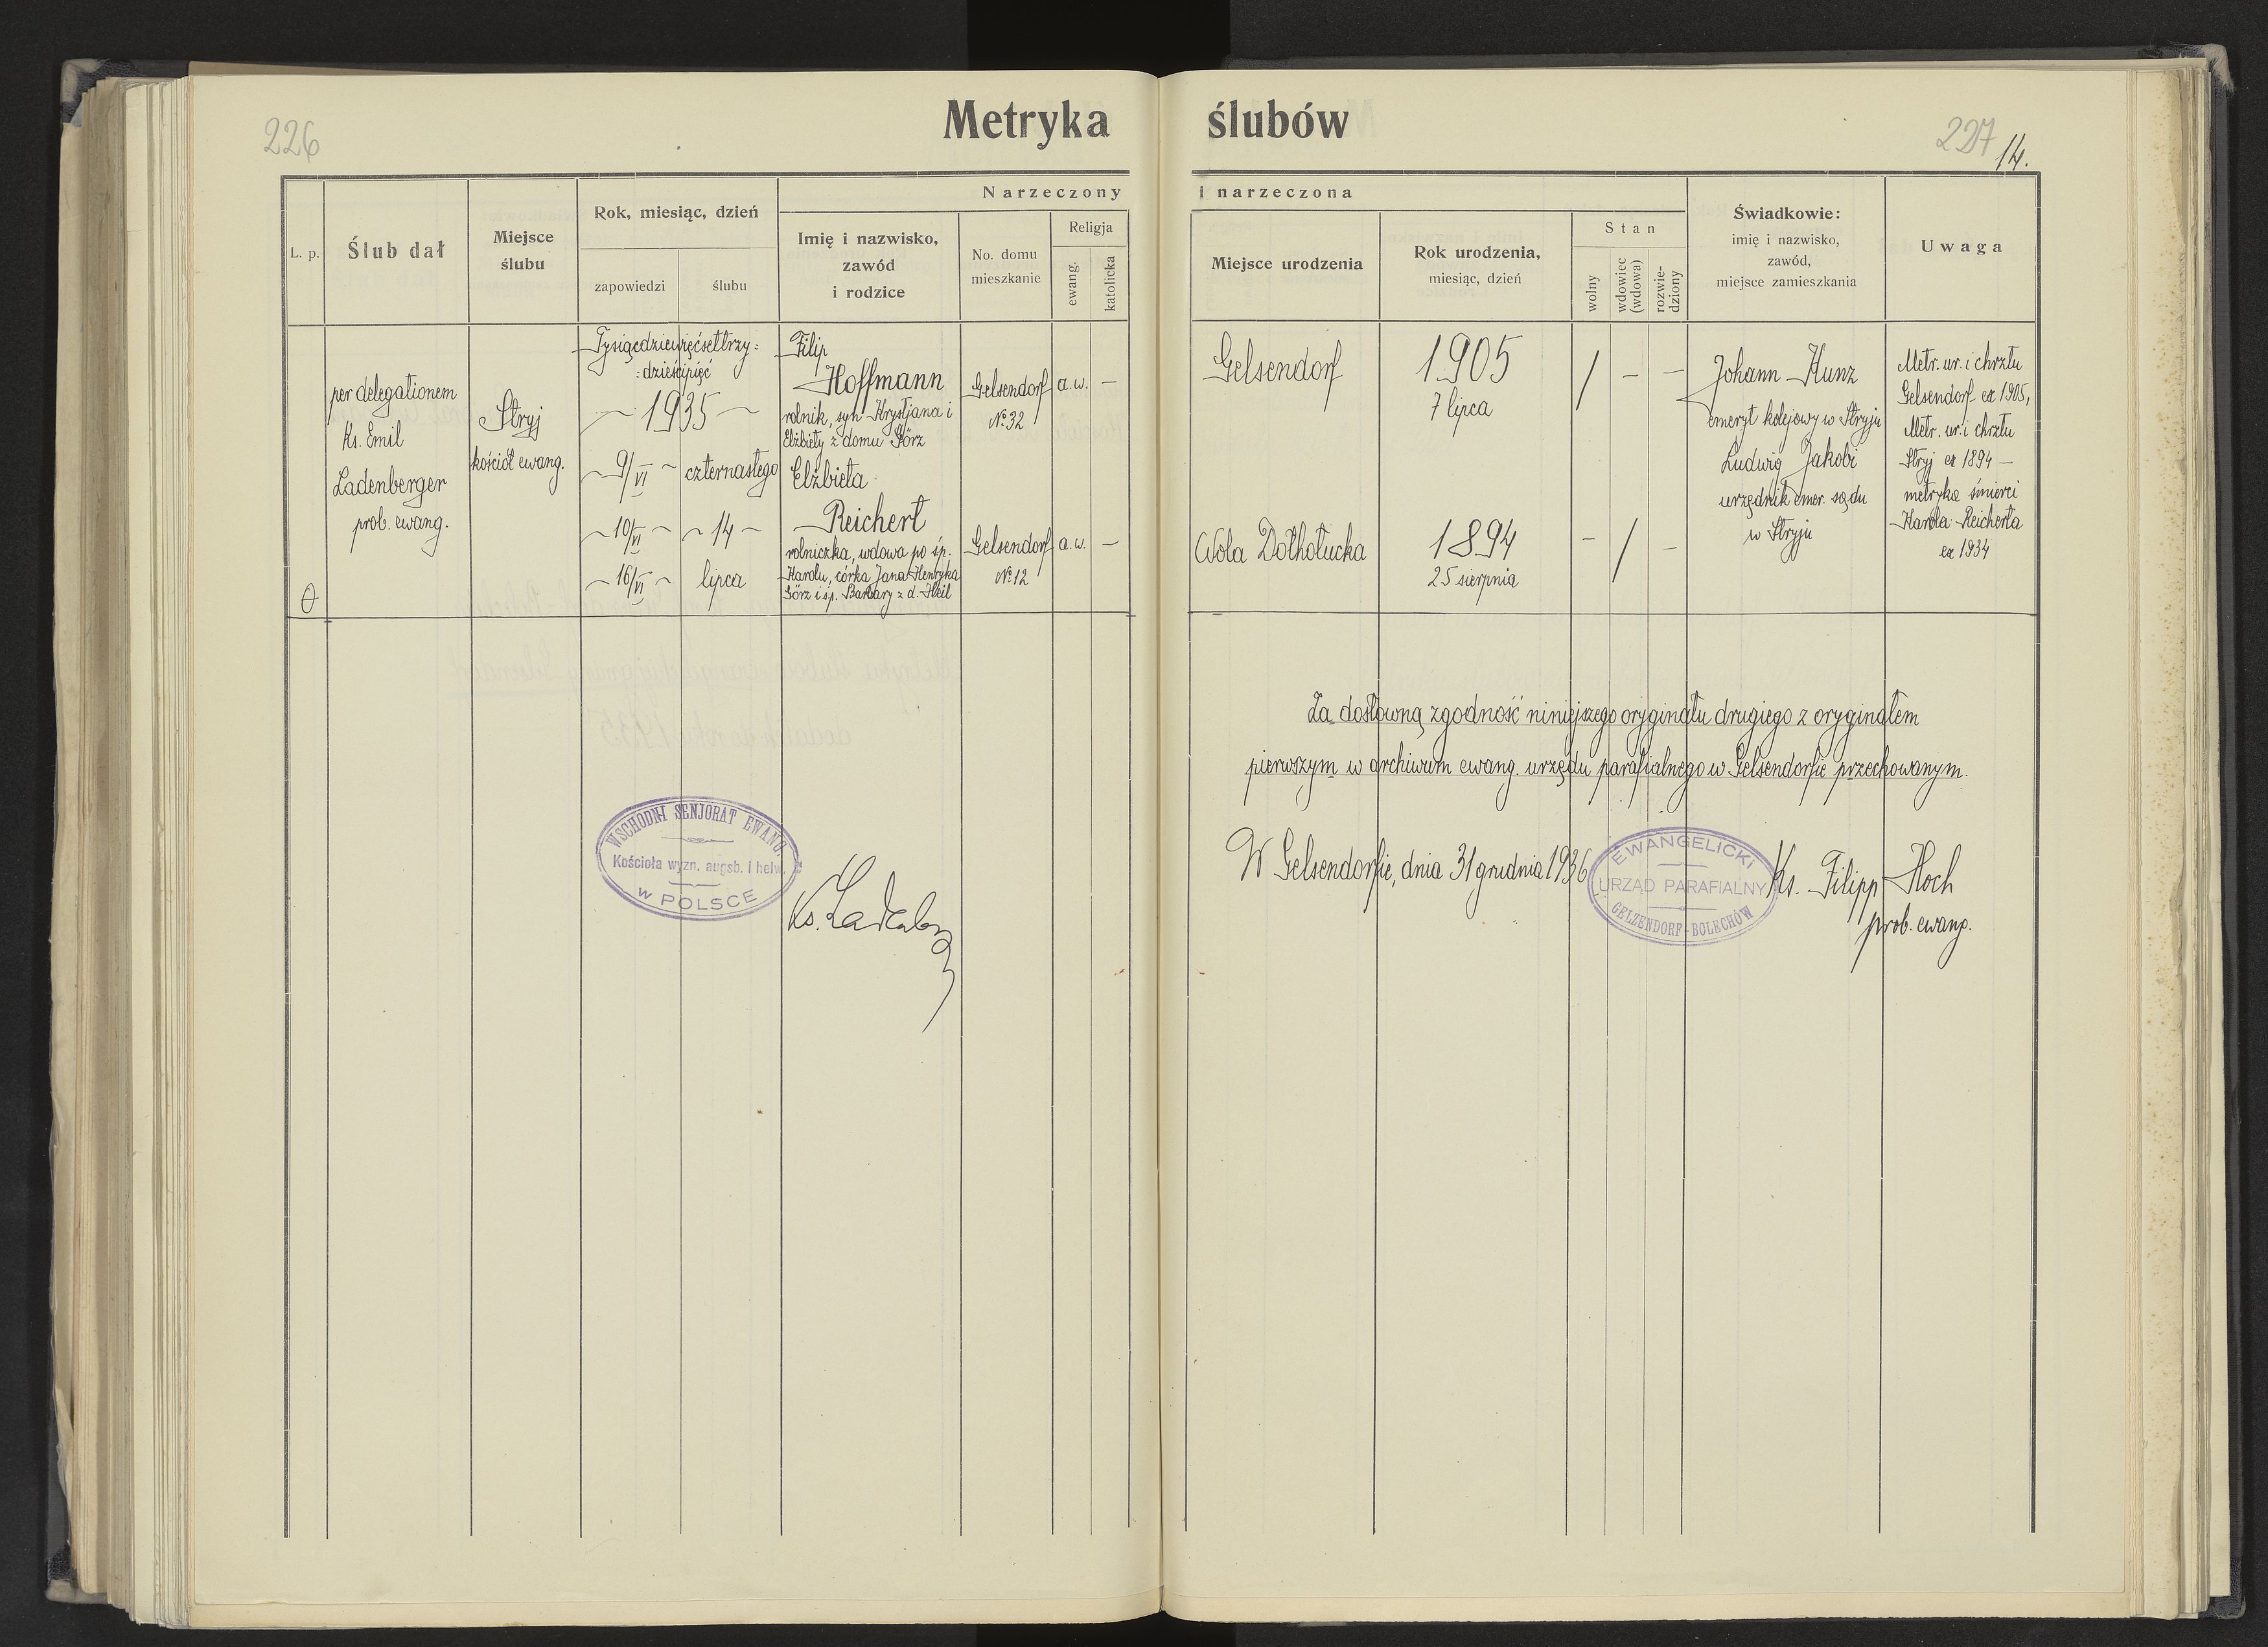 226
Metryka ślubów
227
14.
Narzeczony i narzeczona
L. p.
Ślub dał
Miejsce
ślubu
Rok, miesiąc, dzień
zapowiedzi
ślubu
Imię i nazwisko,
zawód
i rodzice
No. domu
mieszkanie
Religja
ewang.
katolicka
Miejsce urodzenia
Rok urodzenia,
miesiąc, dzień
Stan
wolny
wdowiec
(wdowa)
rozwie-
dziony
Świadkowie:
imię i nazwisko,
zawód,
miejsce zamieszkania
Uwaga
per delegationem
Ks. Emil
Ladenberger
prob. ewang.
Stryj
kościół ewang.
Tysiącdziewięćsettrzy=
=dzieścipięć
~ 1935 ~
~ 9/VI ~
~ 10/VI ~
~ 16/VI ~
czternastego
~ 14 ~
lipca
Filip
Hoffmann
rolnik, syn Krystjana i
Elżbiety z domu Görz
Gelsendorf
№ 32
a. w.
—
Gelsendorf
1905
7 lipca
/
—
—
Elżbieta
Reichert
rolniczka, wdowa po śp.
Karolu, córka Jana Henryka
Görz i śp. Barbary z d. Keil
Gelsendorf
№ 12
a. w.
—
Wola Dołhołucka
1894
25 sierpnia
—
/
—
Johann Kunz
emeryt kolejowy w Stryju
Ludwig Jakobi
urzędnik emer. sądu
w Stryju
Metr. ur. i chrztu
Gelsendorf ex 1905,
Metr. ur. i chrztu
Stryj ex 1894 —
metryka śmierci
Karola Reicherta
ex 1934
Za dosłowną zgodność niniejszego oryginału drugiego z oryginałem
pierwszym w archiwum ewang. urzędu parafialnego w Gelsendorfie przechowanym.
W Gelsendorfie, dnia 31 grudnia 1936
EWANGELICKI
URZĄD PARAFIALNY
GELZENDORF-BOLECHÓW
Ks. Filipp Koch
prob. ewang.
WSCHODNI SENJORAT EWANG.
Kościoła wyzn. augsb. i helw.
w POLSCE
Ks.